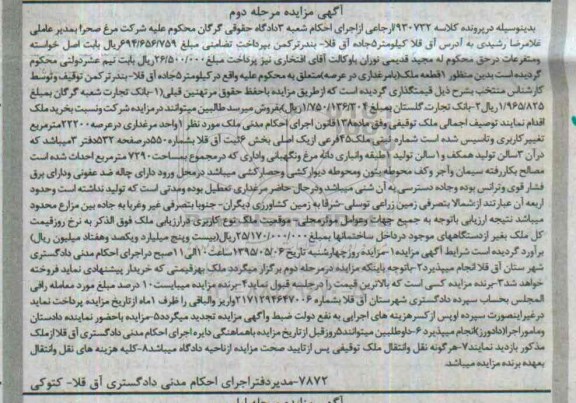 آگهی مزایده مرحله دوم
بدینوسیله درپرونده کلاسه ۹۳۰۷۳۲ ارجاعی ازاجرای احکام شعبه ۳دادگاه حقوقی گرگان محکوم علیه شرکت مرغ صحرا بمدیر عاملی
غلامرضا رشیدی به آدرس آق قلا کیلومتر۵جاده آق قلا- بندرترکمن بپرداخت تضامنی مبلغ ۶۹۴/۶۵۶/۷۵۹ریال بابت اصل خواسته
ومتفرعات درحق محکوم له مجید قدیمی نوران باوکالت آقای افتخاری نیز پرداخت مبلغ ۲۶/۵۰۰/۰۰۰ریال بابت نیم عشردولتی محکوم
گردیده است بدین منظور ۱قطعه ملک(بامرغداری در عرصه)متعلق به محکوم علیه واقع در کیلومتر۵جاده آق قلا-بندرترکمن توقیف وتوسط
کارشناس منتخب بشرح ذیل قیمتگذاری گردیده است که ازطریق مزایده باحفظ حقوق مرتهنین قبلی(۱-بانک تجارت شعبه گرگان بمبلغ
۱/۹۶۵/۸۲۵ریال۲-بانک تجارت گلستان بمبلغ ۱/۷۵۰/۱۳۶/۳۰۴ریال)بفروش میرسد طالبین میتوانند درمزایده شرکت ونسبت بخرید ملک
اقدام نمایند توصیف اجمالی ملک توقیفی وفق ماده۱۳۸قانون اجرای احکام مدنی ملک مورد نظر ۱واحد مرغداری درعرصه۲۲۲۰۰مترمربع
تغییر کاربری و تاسیس شده است شماره ثبتی ملک۴۵فرعی ازیک اصلی بخش ۶ثبت آق قلا بشماره ۵۵۰درصفحه ۵۳۲دفتر ۳میباشد که
درآن ۳سالن تولید همکف و۱سالن تولید ۲طبقه وانباری دانه مرغ ونگهبانی واداری که درمجموع بمساحت۷۲۹۰مترمربع احداث شده است
مصالح بکاررفته سیمان وآجر وکف محوطه بتون ومحوطه دیوارکشی وحصارکشی میباشد درمحل ورود دارای چاله ضد عفونی ودارای برق
فشار قوی وترانس بوده وجاده دسترسی به آن شنی میباشد ودرحال حاضر مرغداری تعطیل بوده ومدتی است که تولید نداشته است وحدود
اربعه آن عبارتند ازشمالا بتصرفی زمین زراعی توسلی -شرقا به زمین کشاورزی دیگران- جنوبا بتصرفی غیر وغربا به جاده بین مزارع محدود
میباشد نتیجه ارزیابی باتوجه به جمیع جهات وعوامل موثرمحلی- موقعیت ملک نوع کاربری درارزیابی ملک فوق الذکر به نرخ روزقیمت
کل ملک بغیر ازدستگاههای موجود درداخل ساختمانها بمبلغ ۲۵/۱۷۰/۰۰۰/۰۰۰ریال(بیست وپنج میلیارد ویکصد وهفتاد میلیون ریال)
برآورد گردیده است شرایط آگهی مزایده۱-مزایده روز چهارشنبه تاریخ ۱۳۹۵/۰۵/۰۶ساعت ۱۰الی۱۱صبح دراجرای احکام مدنی دادگستری
شهرستان آق قلا انجام میپذیرد۲-باتوجه باینکه مزایده درمرحله دوم برگزار میگردد ملک بهرقیمتی که خریدار پیشنهادی نماید فروخته
خواهد شد۳-برنده مزایده کسی است که بالاترین قیمت را درجلسه قبول نماید۴-برنده مزایده میبایست۱۰ درصد مبلغ مورد معامله رافی
المجلس بحساب سپرده دادگستری شهرستان آق قلا بشماره ۲۱۷۱۲۹۴۶۴۷۰۰۶واریز والباقی را ظرف ۱ماه ازتاریخ مزایده پرداخت نماید
درغیراینصورت سپرده اوپس ازکسر هزینه های اجرایی به نفع دولت ضبط وآگهی مزایده تجدید میگردد۵-مزایده باحضور نماینده دادستان
وماموراجرا(دادورز)انجام میپذیرد ۶-داوطلبین میتوانند۵روز قبل ازتاریخ مزایده باهماهنگی دایره اجرای احکام مدنی دادگستری آق قلا ازملک
مذکور بازدید نمایند۷-هرگونه نقل وانتقال ملک توقیفی پس ازتایید صحت مزایده ازناحیه دادگاه میباشد۸-کلیه هزینه های نقل وانتقال
بعهده برنده مزایده میباشد.
۷۸۷۲-مدیردفتراجرای احکام مدنی دادگستری آق قلا- کتوکی